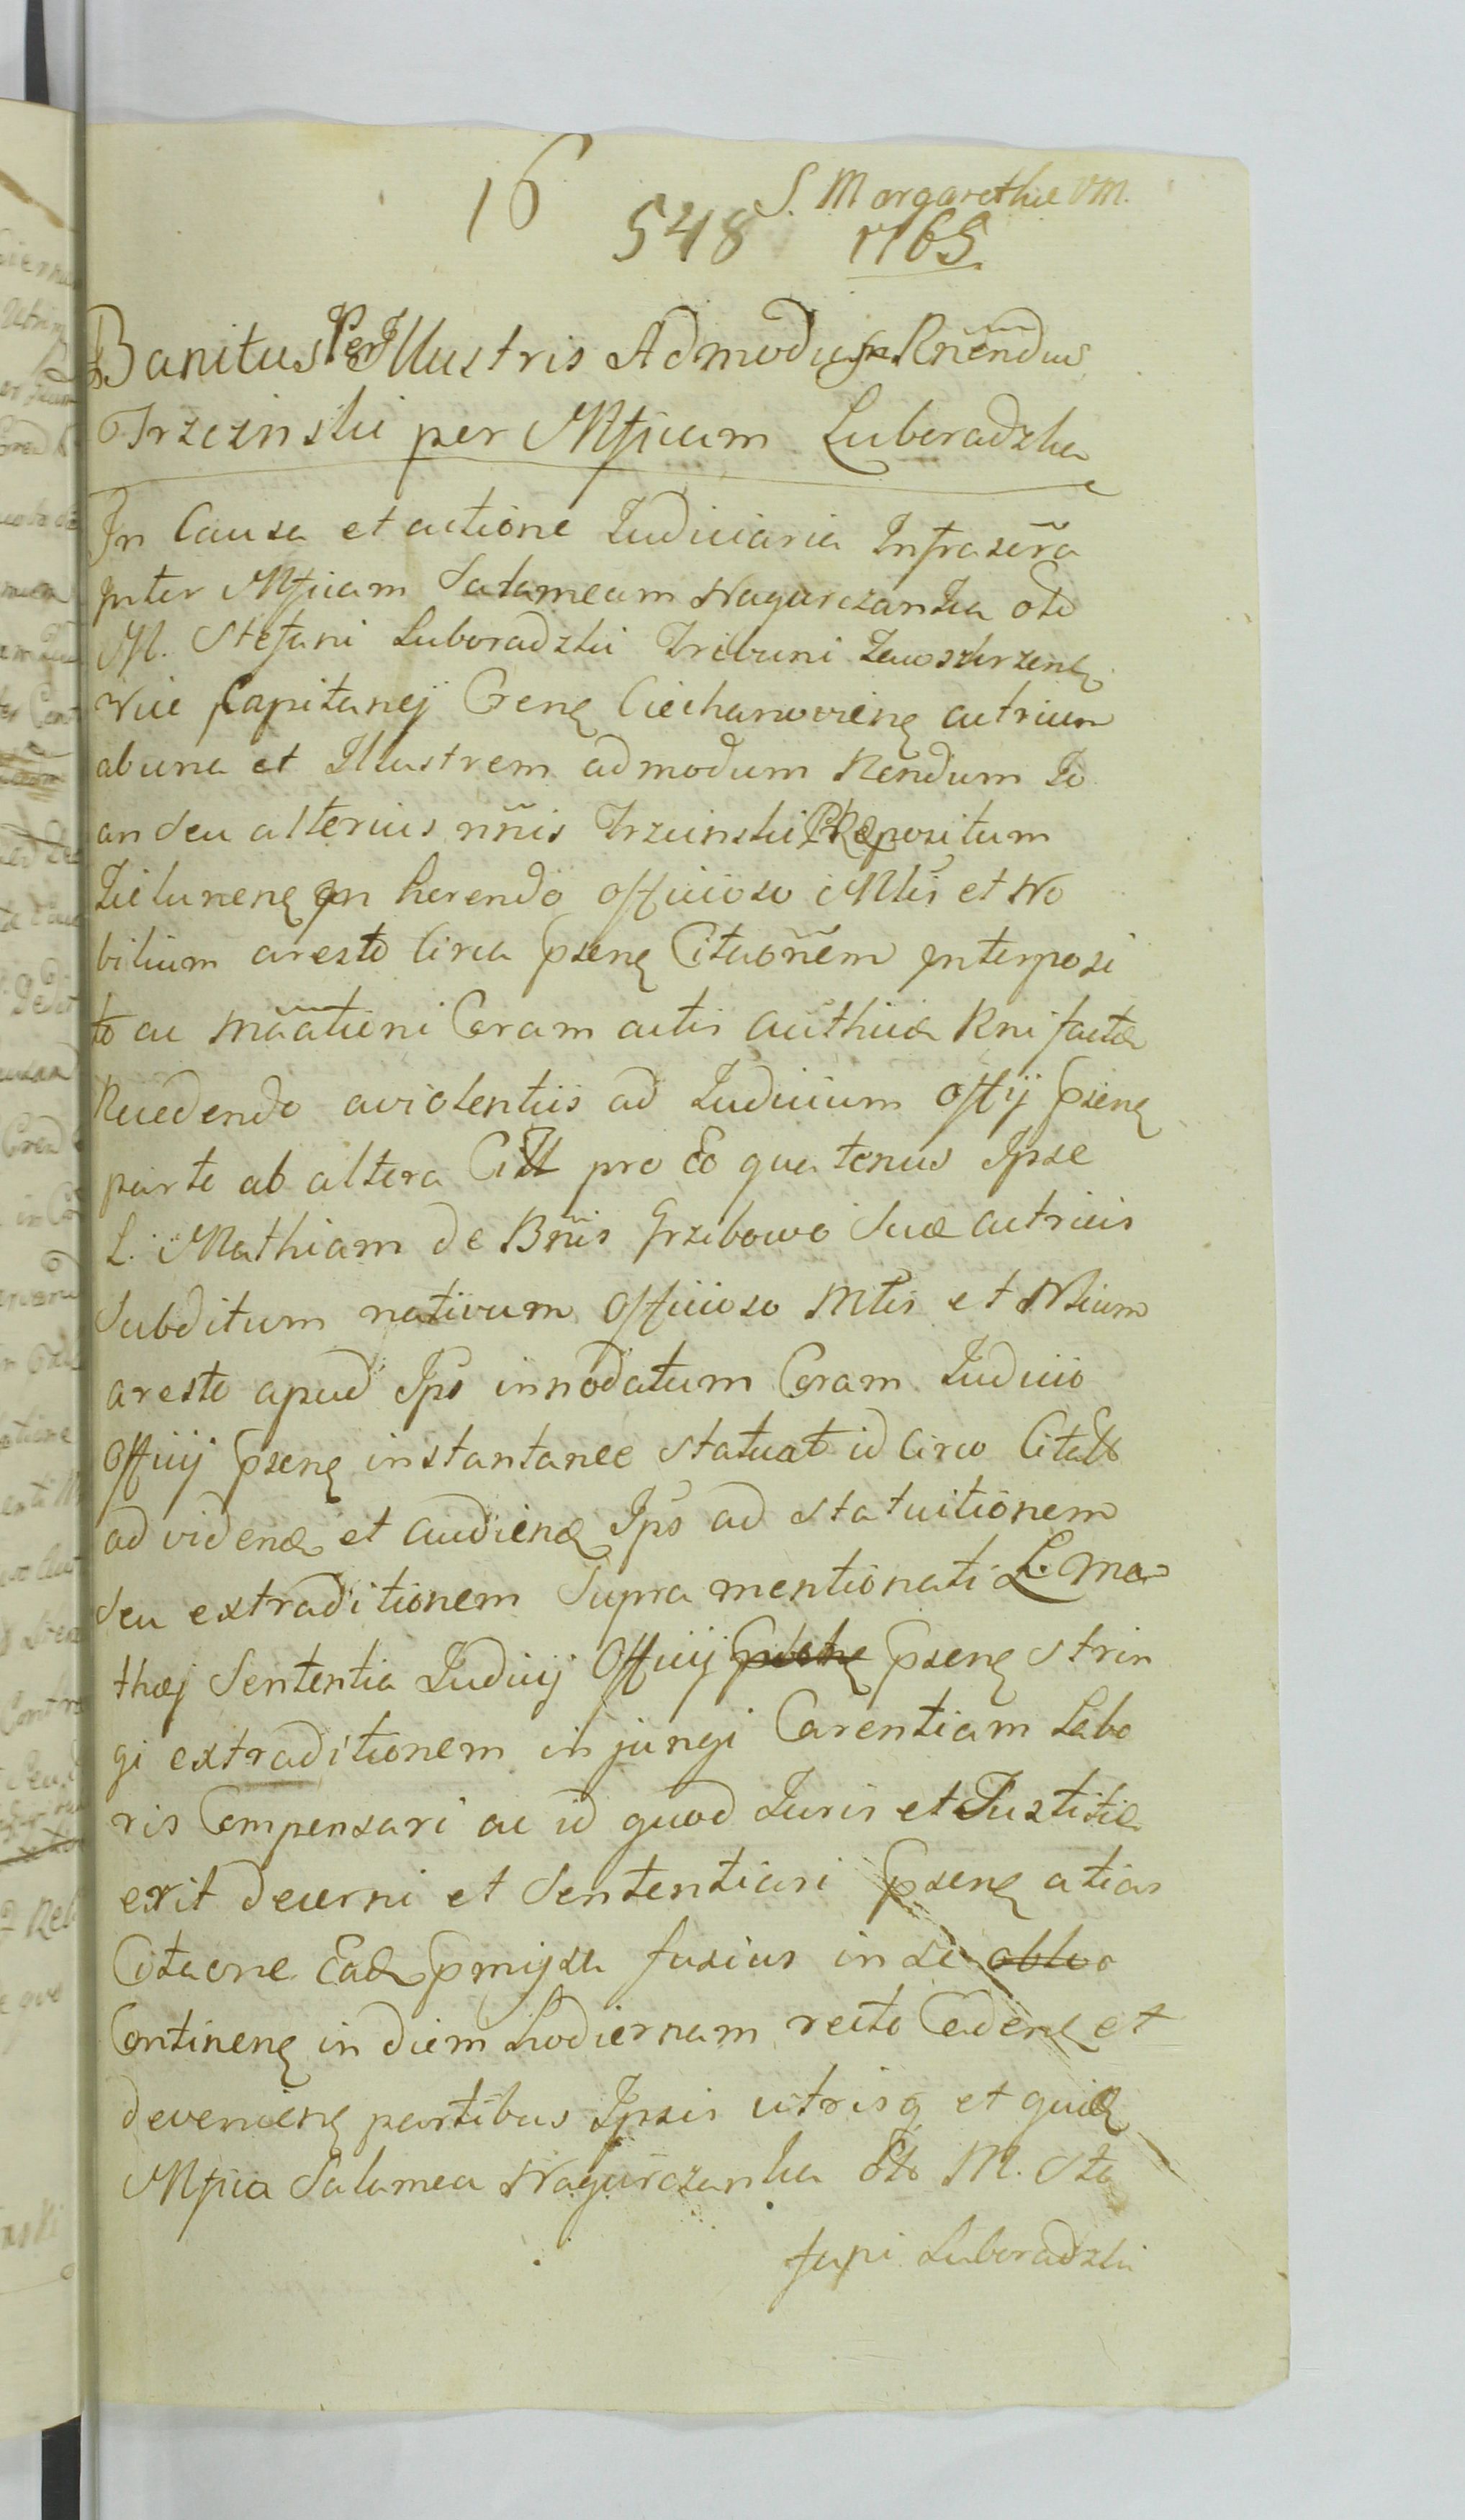 16
S. Margarethæ VM.
548 1765.
Banitus Per Illustris Admodum Rñendus
Trzcinski per Mficam Luboradzka
In Causa et actione Judiciaria Infrascr̃a
Inter Mficam Salomeam Nagurczanka olo
M. Stefani Luboradzki Tribuni Zawszkrzenę
Vice Capitanej Grenę Ciechanovienę actricem
ab una et Illustrem admodum Rendum Jo
an seu alterius nñis Trzcinski Præpositum
Zielunenę In herendo officioso Mtis et No
bilium aresto Circa psenę Citaoñem Interposi
to ac mãationi Coram actis authicæ Rni factæ
Recedendo a violentiis ad Judicium offij psenę
parte ab altera Citt pro Eo qua tenus Ipse
L. Mathiam de Bñis Grzibowo Suæ actricis
Subditum nativum officioso Mtis et Nlium
aresto apud Ips innodatum Coram Judicio
Officij psenę instantanee statuat id Circo Citatt
ad videnæ et audienæ Ips ad statuitionem
seu extraditionem Supra mentionati L. Ma=
thæj Sententia Judicij Officij psenę strin
gi extraditionem injungi Carentiam Labo
ris Compensari ac id quod Juris et Justitiæ
erit decerni et Sententiari psenę atias
Citaone Eadæ pmissa fusius in se
Continenę in diem hodiernam recte Cadenę et
devenienę partibus Ipsis utrisq et quidę
Mfica Salomea Nagurczanka olo M. Ste
fani Luboradzki